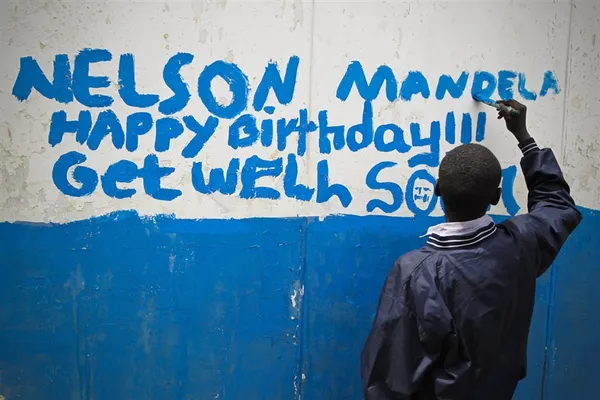 NELSON MANDELA
HAPPY Birthday!!!
Get WELL SOON